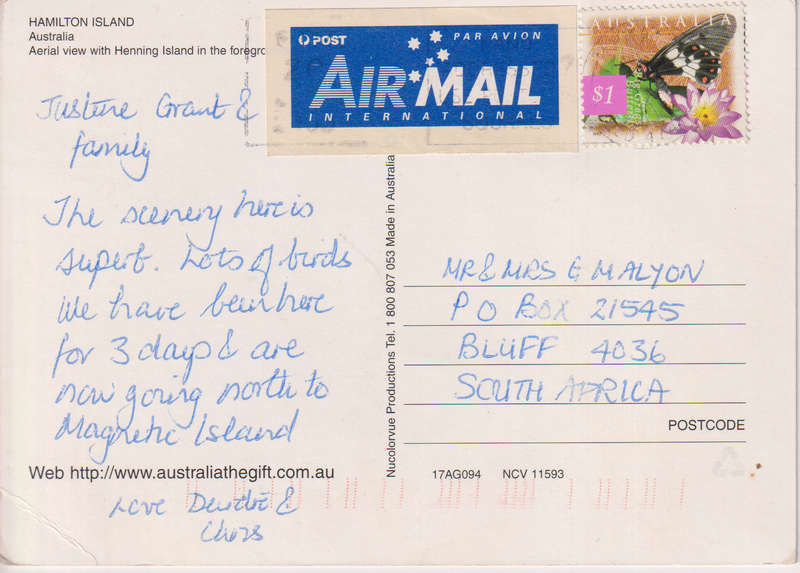 HAMILTON ISLAND
Australia
Aerial view with Henning Island in the foregro
POST
PAR AVION
AIR MAIL
INTERNATIONAL
AUSTRALIA
$1
Justine Grant &
family
The scenery here is
superb. Lots of birds
We have been here
for 3 days & are
now going north to
Magnetic Island
Love Deirdre &
Chris
Nucolorvue Productions Tel. 1 800 807 053 Made in Australia
MR & MRS G MALYON
P O BOX 21545
BLUFF 4036
SOUTH AFRICA
POSTCODE
Web http://www.australiathegift.com.au
17AG094 NCV 11593